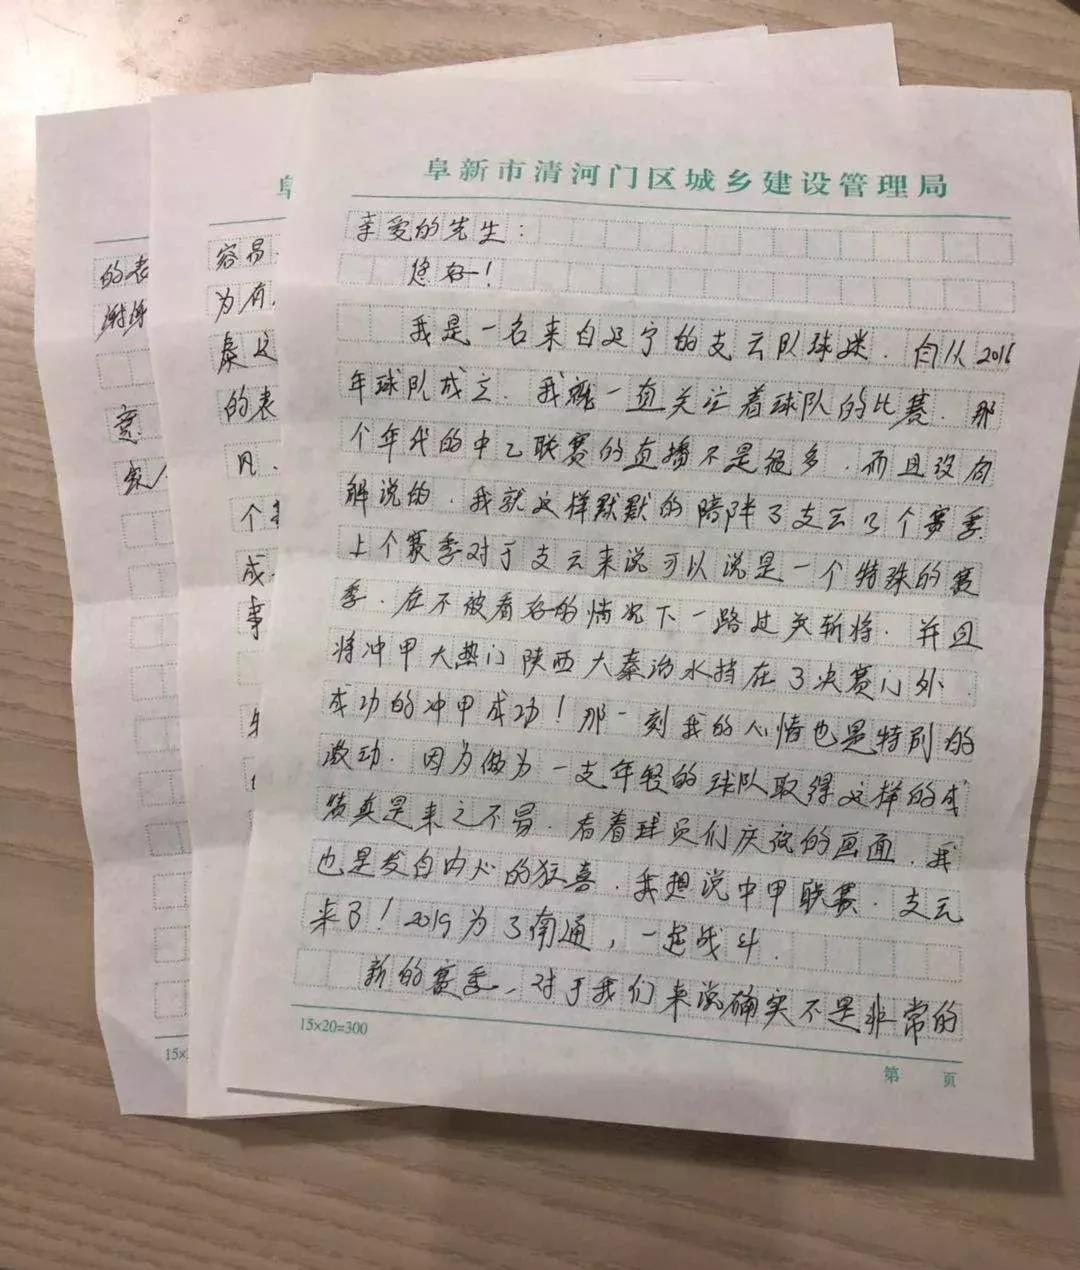 阜新市清河门区城乡建设管理局
亲爱的先生:
您好!
我是一名来自辽宁的支云队球迷.自从2016
年球队成立.我就一直关注着球队的比赛.那
个年代的中乙联赛的直播不是很多.而且没有
解说的.我就这样默默的陪伴了支云3个赛季.
上个赛季对于支云来说可以说是一个特殊的赛
季.在不被看好的情况下一路过关斩将.并且
将冲甲大热门陕西大秦之水挡在了决赛门外.
成功的冲甲成功!那一刻我的心情也是特别的
激动.因为做为一支年轻的球队取得这样的成
绩真是来之不易.看着球员们庆祝的画面.我
也是发自内心的狂喜.我想说中甲联赛.支云
来了!2019为了南通,一起战斗.
新的赛季,对于我们来说确实不是非常的
15×20=300
第 页
阜
容易
为有
泰这
的表
凡.
个
成
事
15×
的表
谢谢